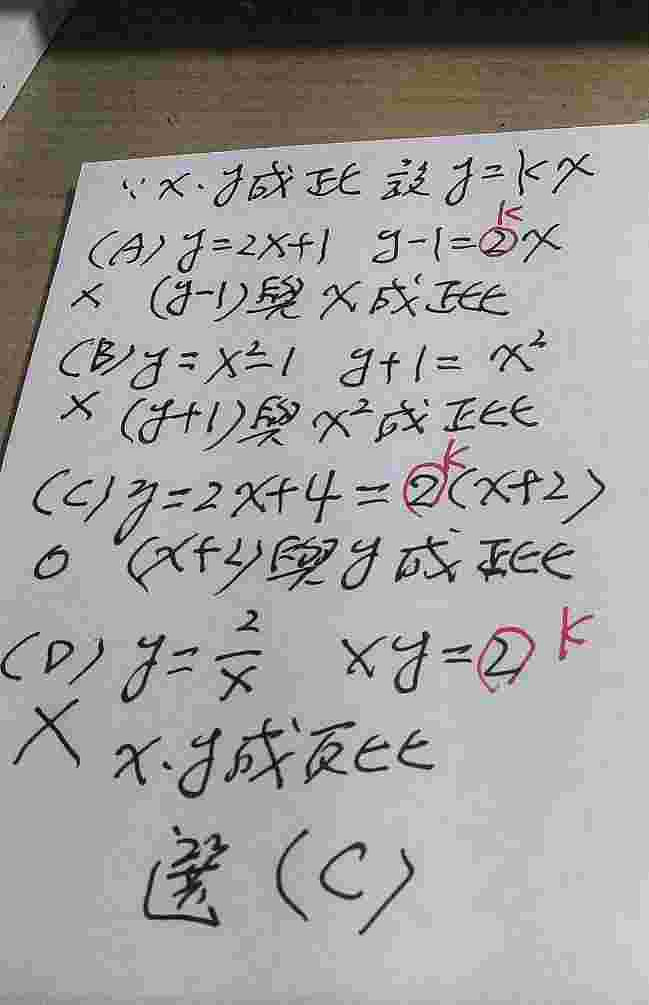 ∵x.y成正比 設 y=kx
(A) y=2x+1 y-1=2x k
× (y-1)與 x成正比
(B) y=x²-1 y+1= x²
× (y+1)與 x²成正比
(C) y=2x+4=2(x+2) k
○ (x+2)與y成正比
(D) y=2/x xy=2 k
× x.y成反比
選 (C)